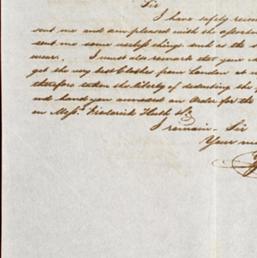 Sir
I have safely recei
sent me and am pleased with the
sent me some useless things such as the
wear. I must also remark that your
get the very best Clothes from London at
therefore taken the liberty of deducting the
and hand you annexed an Order for the
on Messrs. Frederick Huth &Co
I remain - Sir
Your m